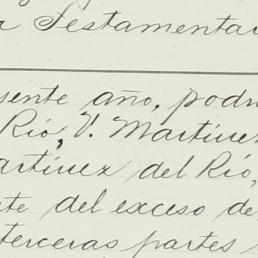 Testamentar
sente año, podr
Río, V. Martínez
artínez del Río,
te del exceso de
terceras partes